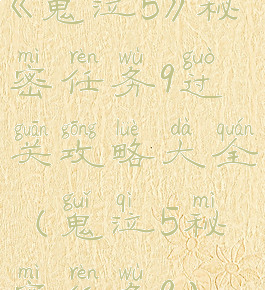 《鬼泣5》秘
mì rèn wù guò
密任务9过
guān gōng lüè dà quán
关攻略大全
guǐ qì mì
(鬼泣5秘
mì rèn wù
密任务9)